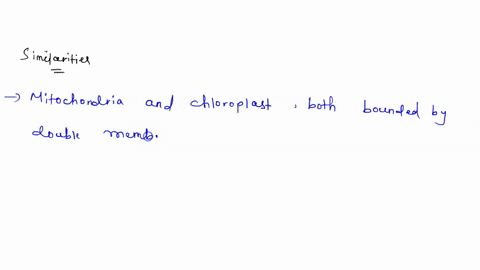 Similarities
→ Mitochondria and chloroplast, both bounded by
double memb.